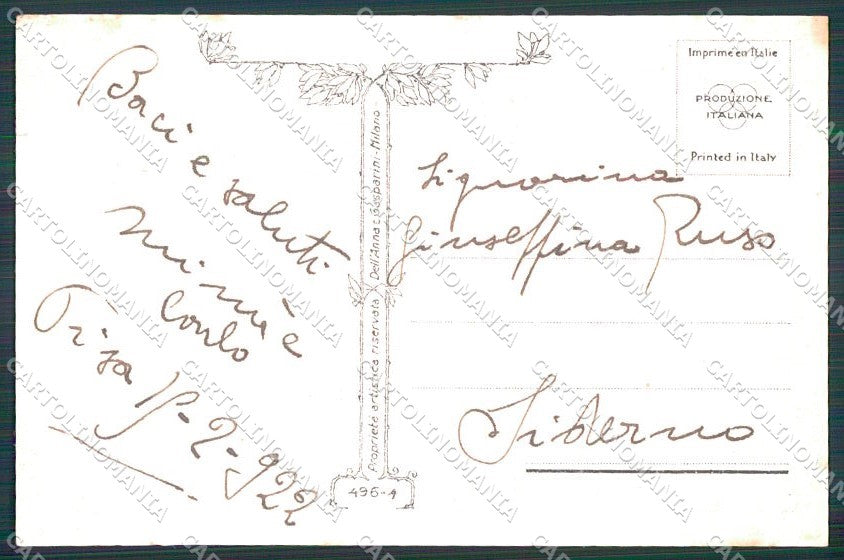 Baci e saluti
Mimì e
Carlo
Pisa
2-922
Proprietà artistica riservata Dell'Anna e Gasparini - Milano
496-1
Imprimé en Italie
PRODUZIONE
ITALIANA
Printed in Italy
Signorina
Giuseffina Russo
Siderno
CARTOLINOMANIA